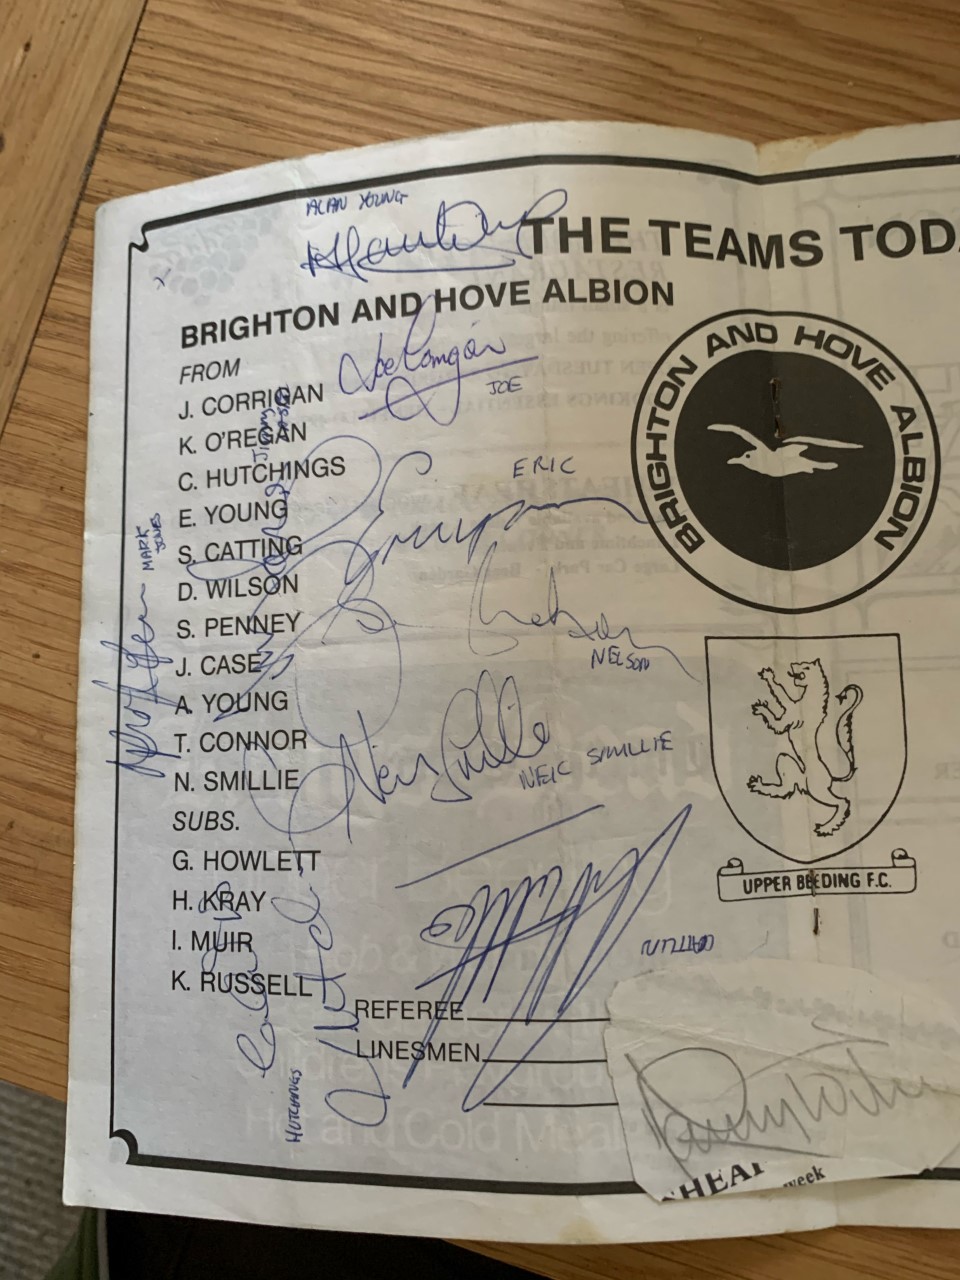 ALAN YOUNG
THE TEAMS TOD
BRIGHTON AND HOVE ALBION
FROM
Joe Corrigan
JOE
J. CORRIGAN
K. O'REGAN
C. HUTCHINGS
E. YOUNG
S. CATTING
D. WILSON
S. PENNEY
J. CASE
A. YOUNG
T. CONNOR
N. SMILLIE
SUBS.
G. HOWLETT
H. KRAY
I. MUIR
K. RUSSELL
JIMMY CASE
ERIC
MARK JONES
NELSON
Neil Smillie
NEIL SMILLIE
CATTLIN
HUTCHINGS
REFEREE
LINESMEN
BRIGHTON AND HOVE ALBION
UPPER BEEDING F.C.
week